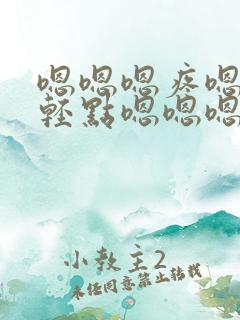 嗯嗯嗯疼嗯
輕點嗯嗯嗯
小教主2
未經同意禁止轉載